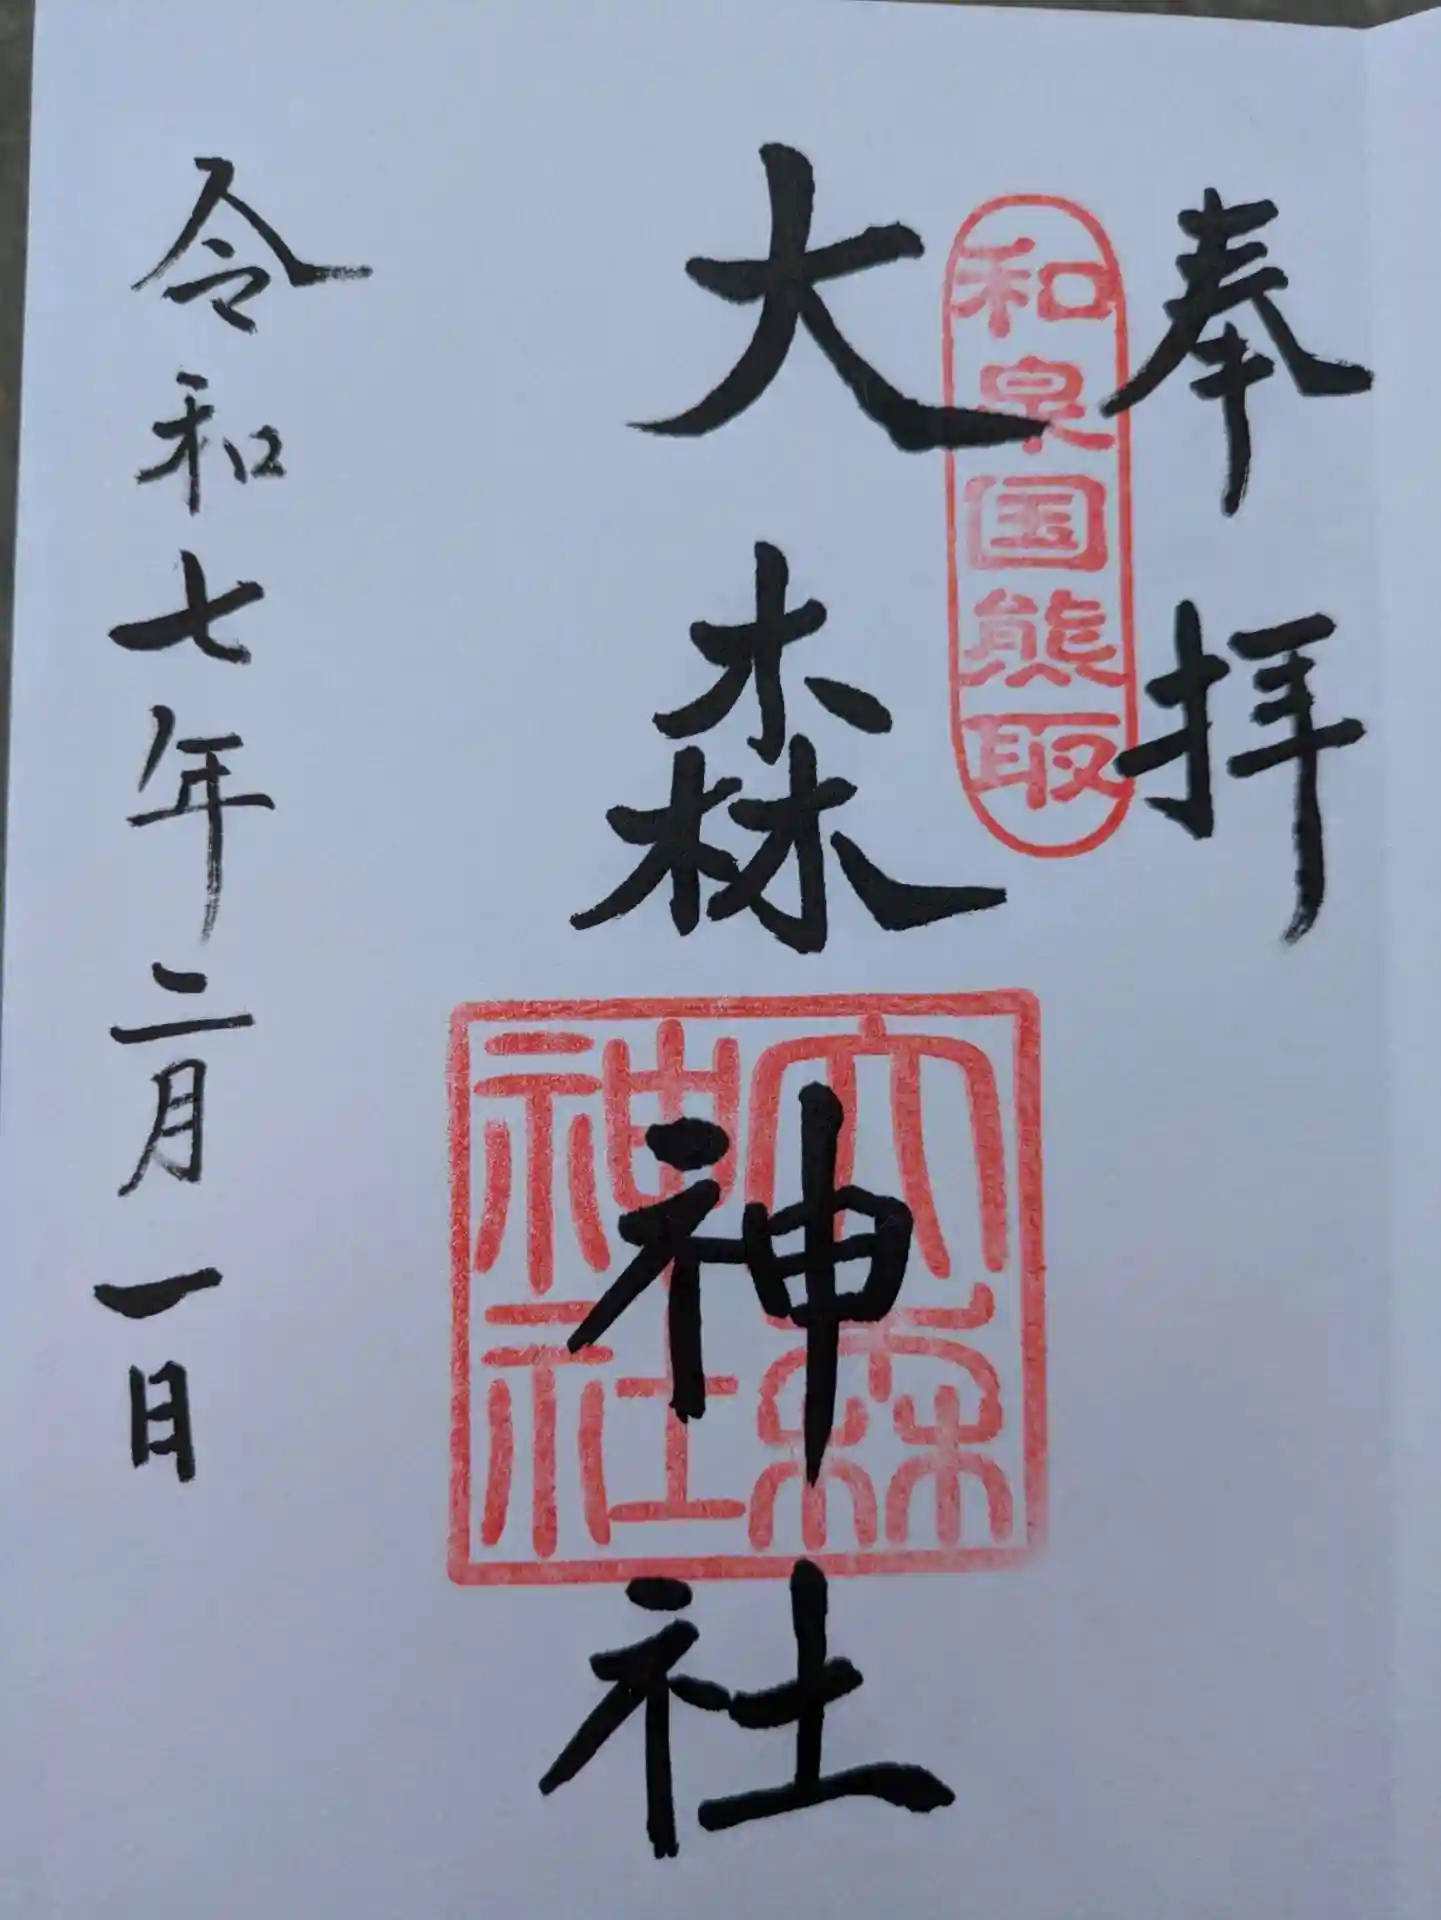 奉拝
和泉国熊取
大森神社
大森神社
令和七年二月一日